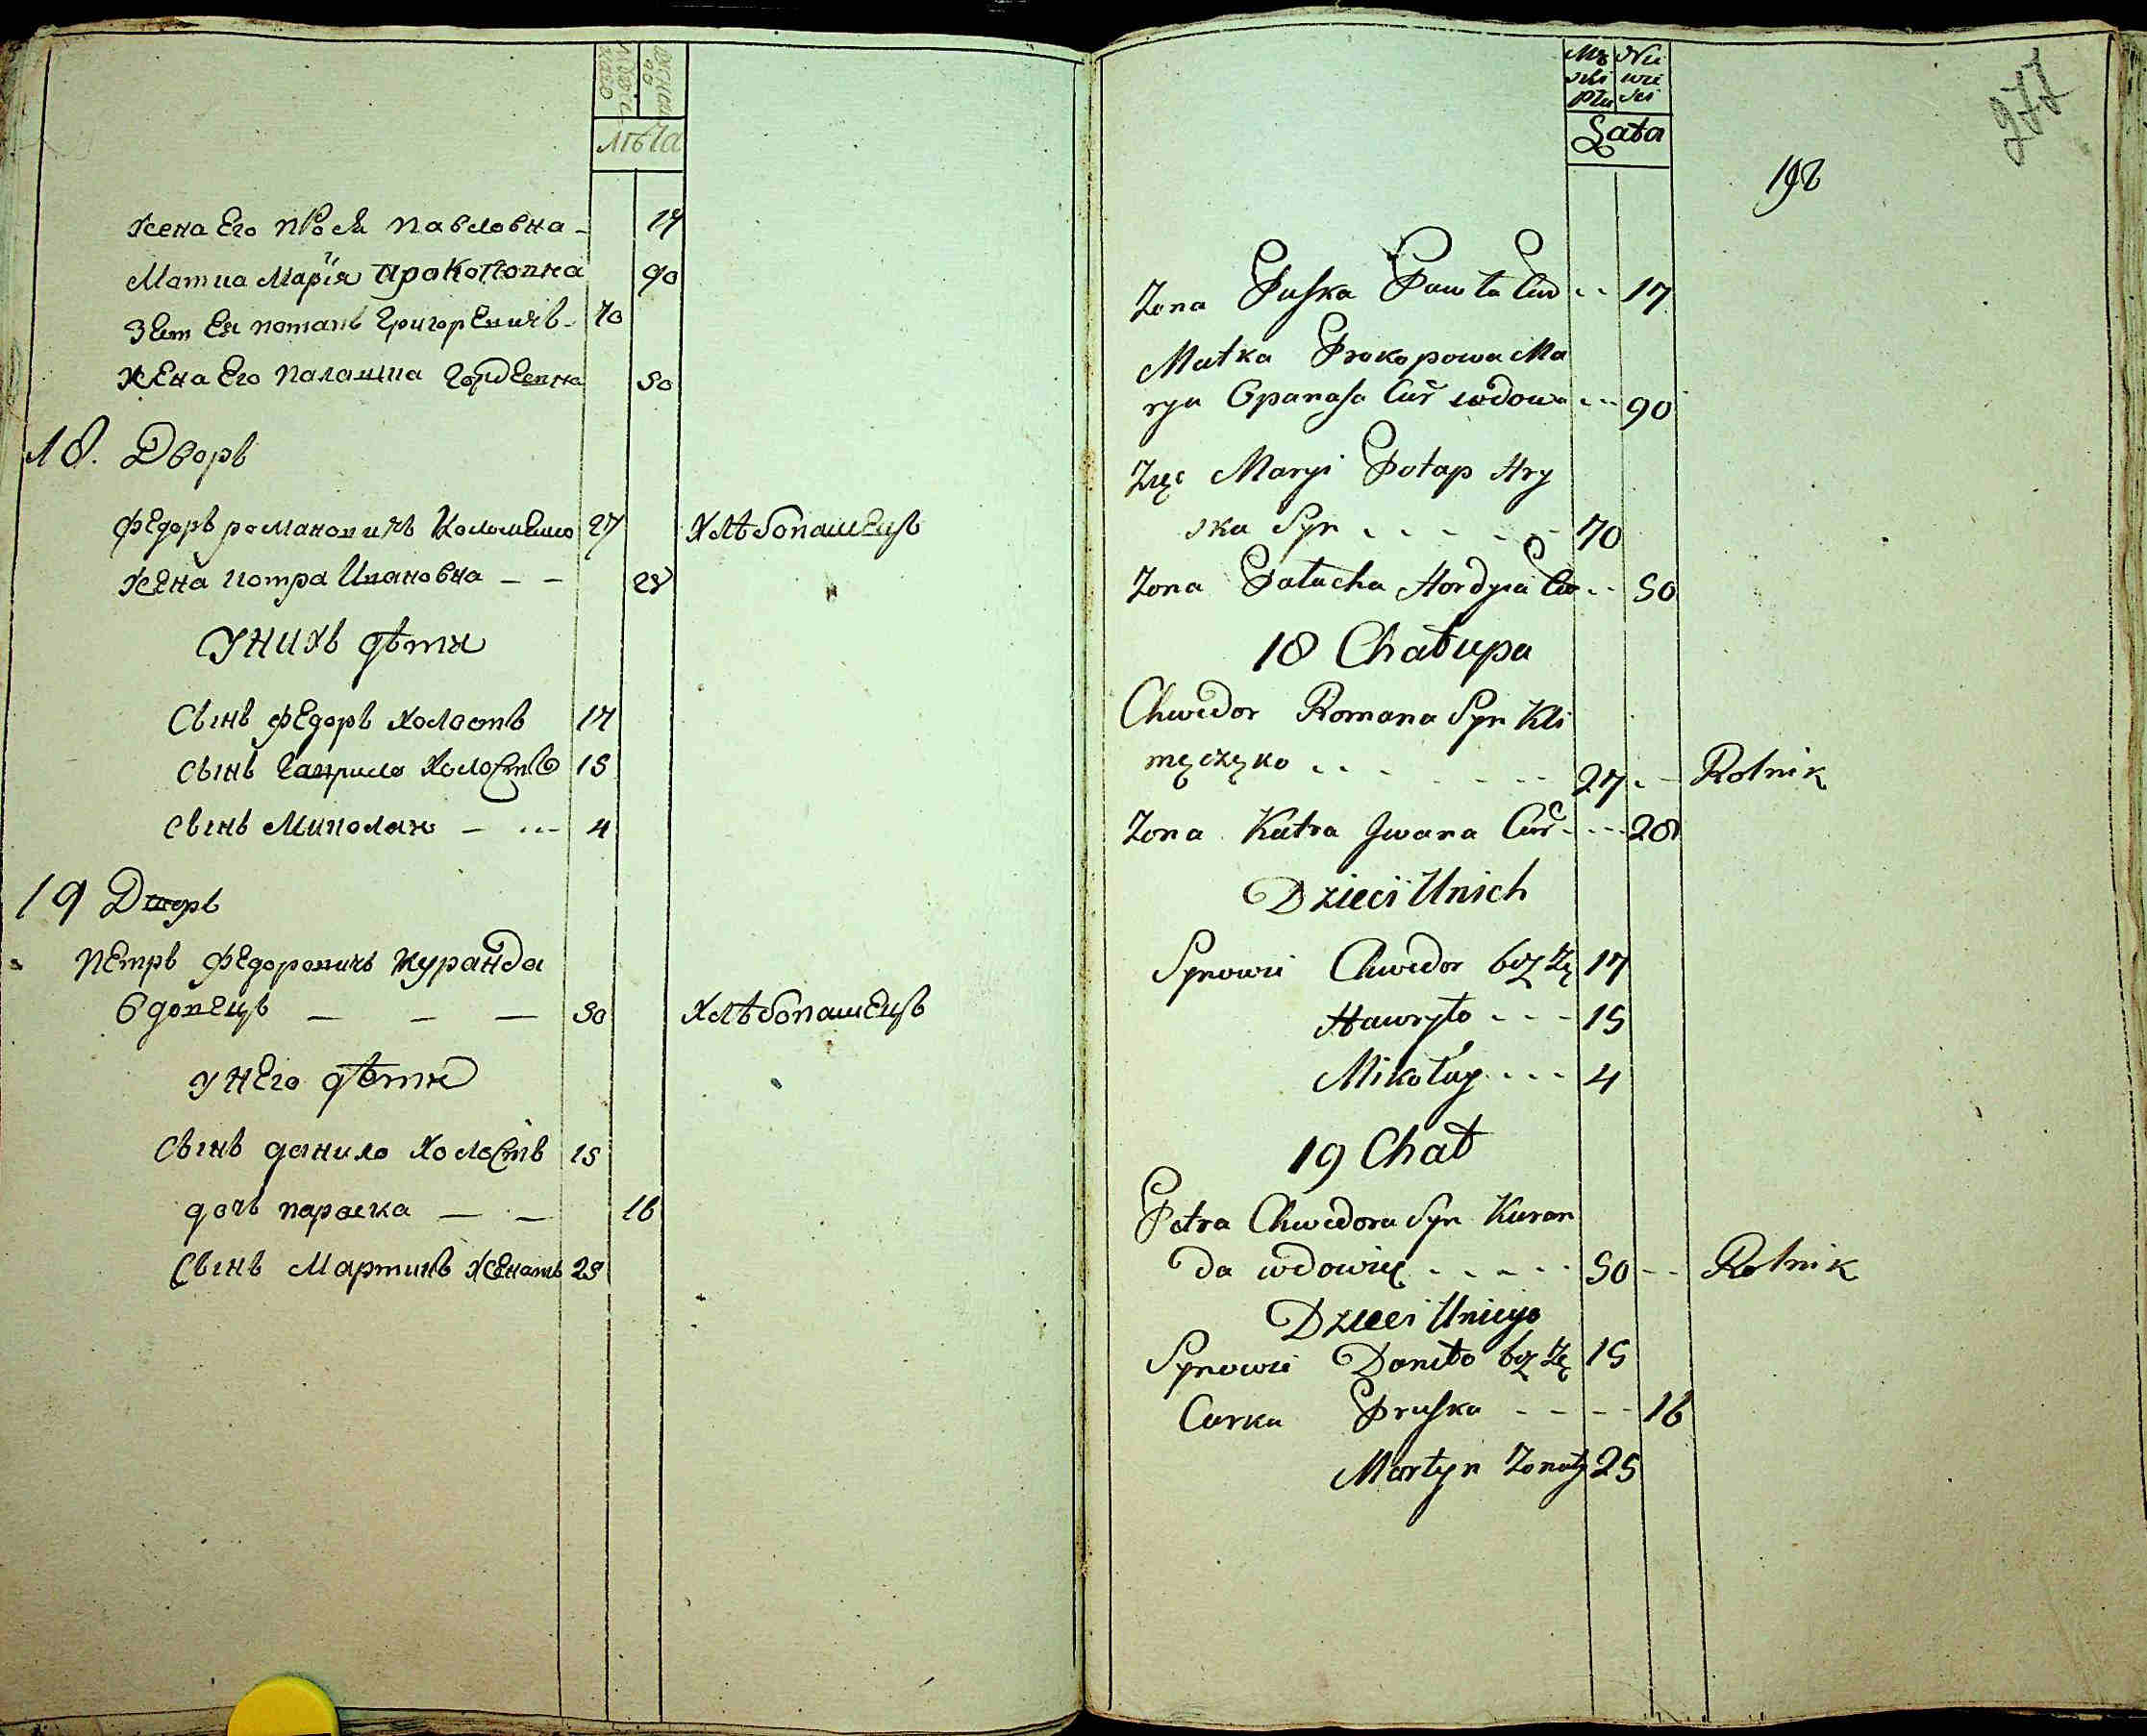 мужеска
женска
лѣта
жена Его прося павловна - 17
Матка Марїя прокоповна 90
Зет Ея потапъ Григоревичъ - 70
жена Его палашка Гордевна 50
18. Дворъ
Федоръ романовичъ 27 хлѣбопашецъ
жена катра Ивановна - - 28
у нихъ дѣти
Сынъ Федоръ холостъ 17
сынъ Гаврило холостъ 15
сынъ Миколай - --- 4
19 Дворъ
Петръ Федоровичъ Куранда
вдовецъ — — — 50 хлѣбопашецъ
у него дѣти
Сынъ данило холостъ 15
дочь параска — — 16
Сынъ Мартинъ женатъ 25
277
198
Mę Nie
ski wie
Płu ści
Lata
Zona Paska Pawła Cur -- 17
Matka Prokopowa Ma
rya Opanasa Cur wdowa --- 90
Zięć Maryi Potap Hry
ska Syn - - - - - 70
Zona Pałacha Hordyia Cur -- 50
18 Chałupa
Chwedor Romana Syn Kli
męczęko - - - - - - 27 - - Rolnik
Zona Katra Jwana Cur - - - - 28
Dzieci Unich
Synowie Chwedor bez Żę 17
Hawryło - - - 15
Mikołay - - - 4
19 Chał
Petra Chwedora Syn Kuran
da wdowiec - - - - - 50 - - Rolnik
Dzieci Uniego
Synowie Daniło bez Żę 15
Curka Praska - - - - 16
Martyn Zonaty 25